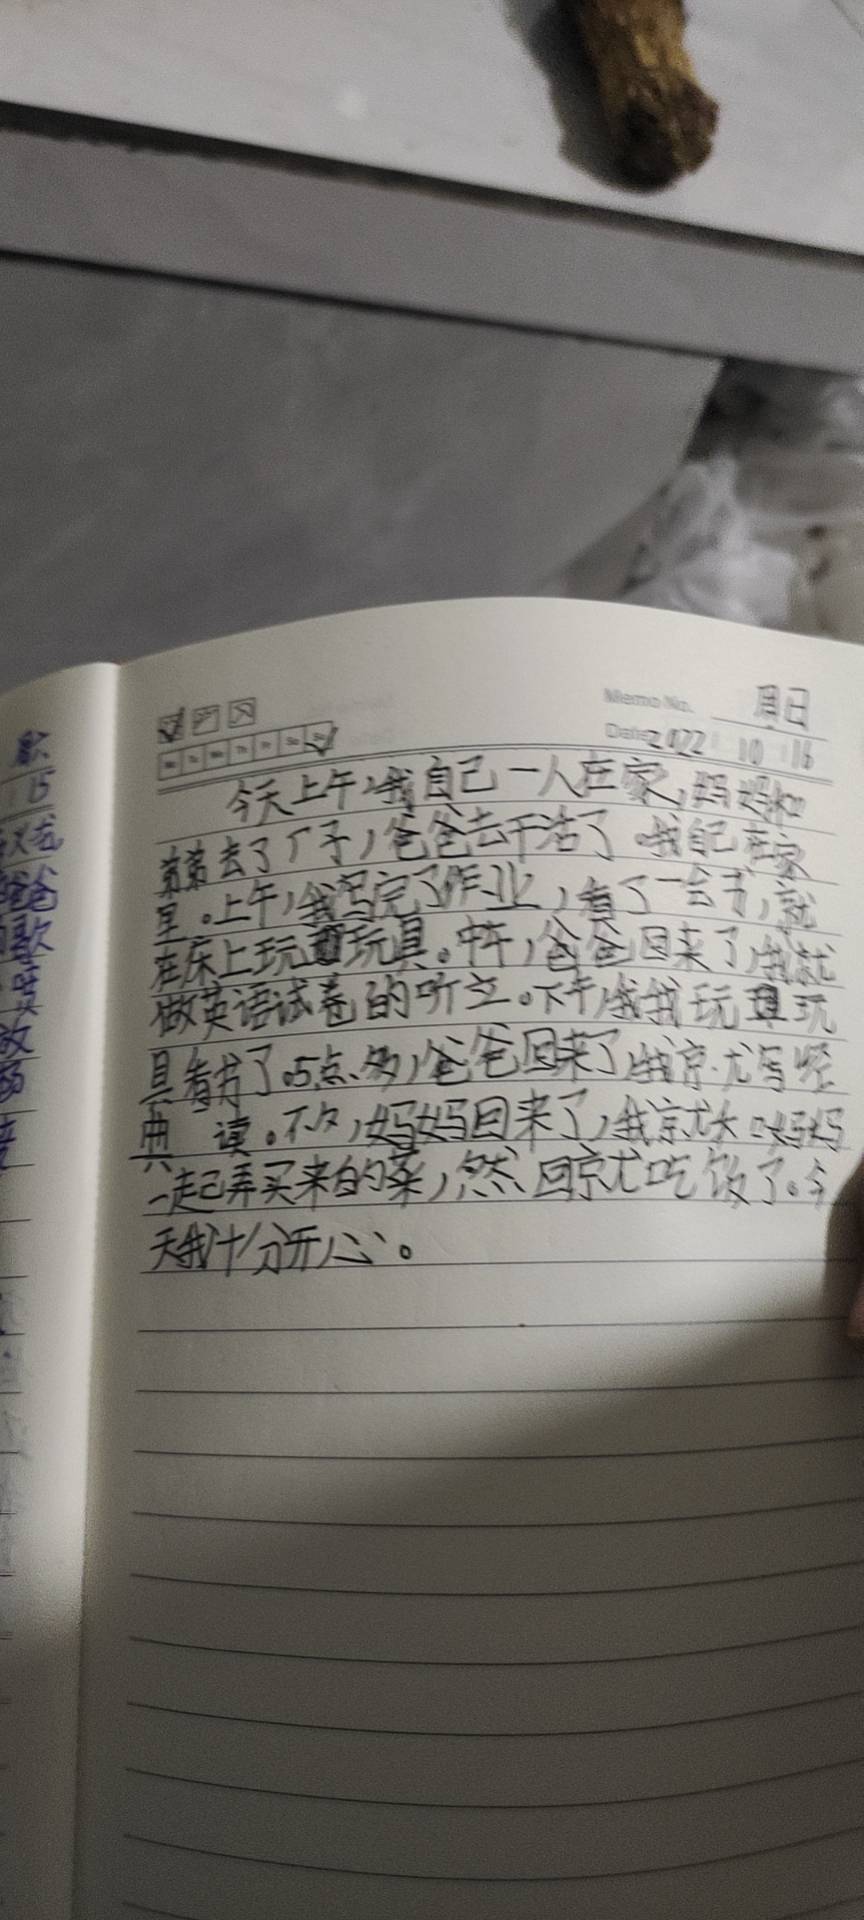 Memo No. 周日
Date 2022 10 16
今天上午,我自己一人在家,妈妈和
弟弟去了厂子,爸爸去干活了。我自己在家
里。上午,我写完了作业,看了一会书,就
在床上玩玩具。中午,爸爸回来了,我就
做英语试卷的听立。下午,我我玩玩
具看书了。5点多,爸爸回来了,我就写
典 读。不久,妈妈回来了,我就长口妈妈
一起弄买来的菜,然回就吃饭了。今
天我十分开心。
歌
15
爸
歌